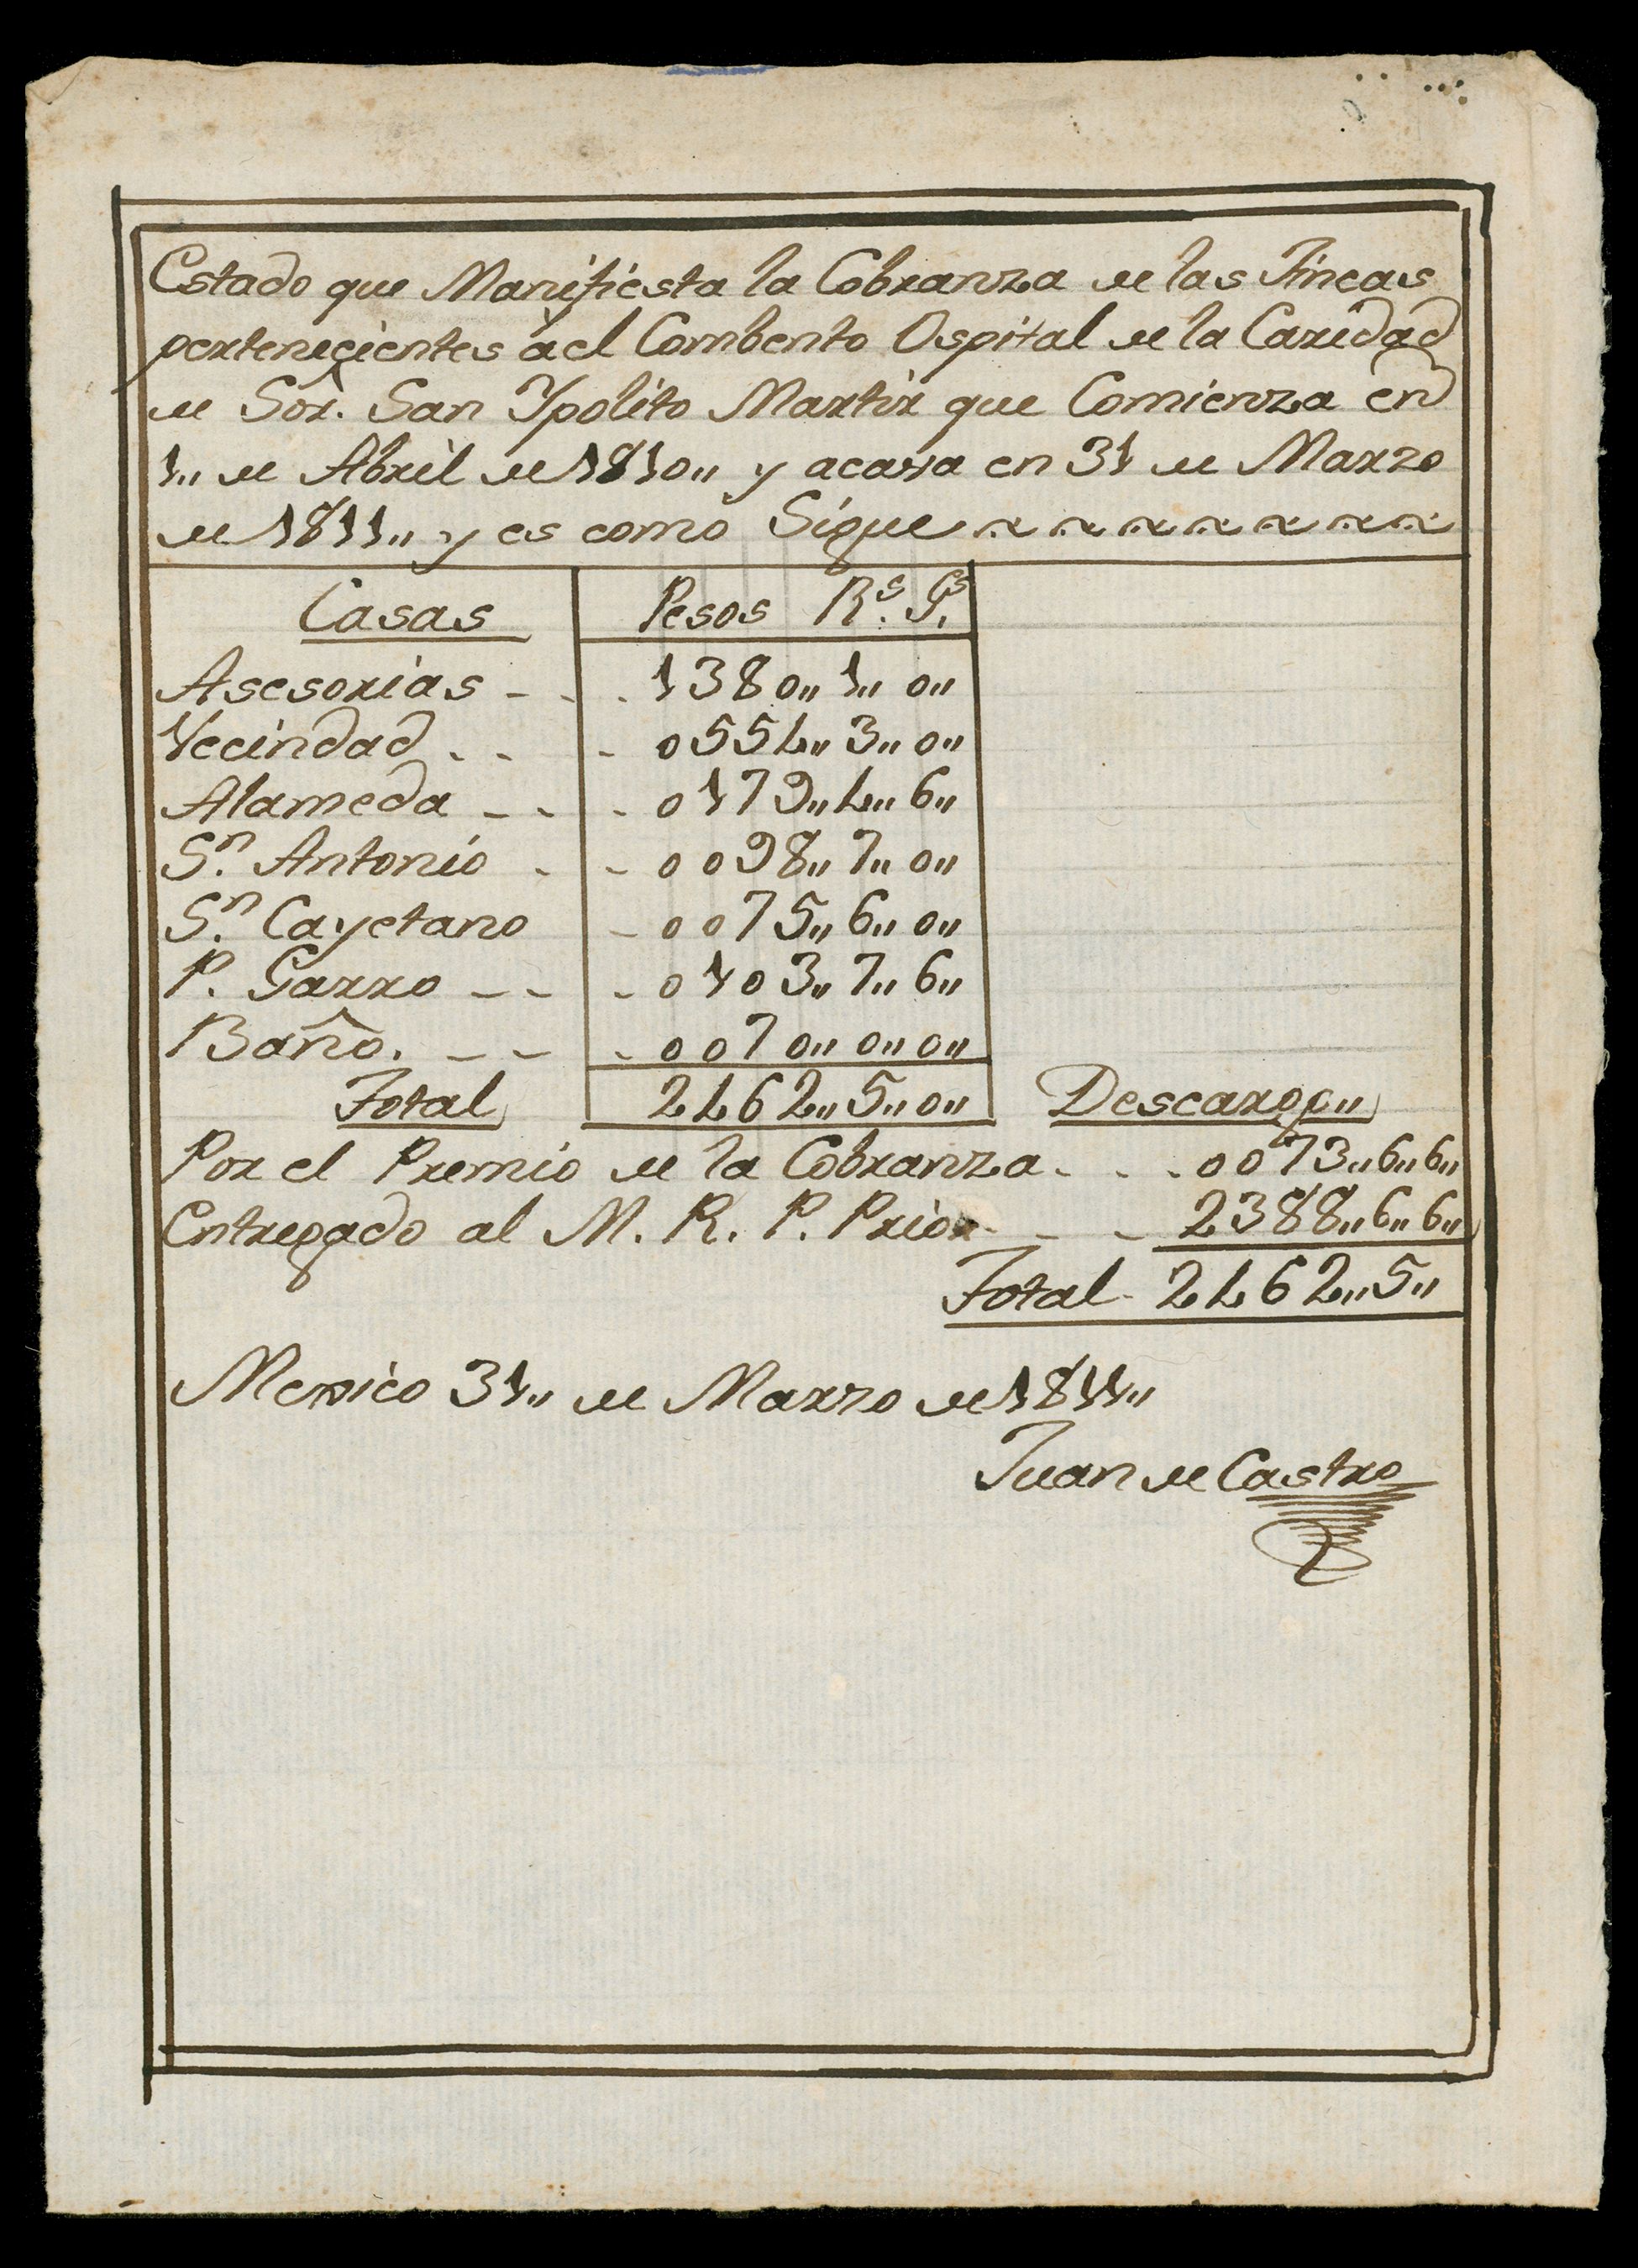 Estado que Manifiesta la Cobranza de las Fincas
pertenecientes á el Combento Ospital de la Caridad
de Sôr. San Ypolito Martir que Comienza en
1,, de Abril de 1810,, y acava en 31 de Marzo
de 1811,, y es como Sigue
Casas Pesos Rs. Gs.
Asesorias - - . 1380,, 1,, 0,,
Vecindad . . - 0554,, 3,, 0,,
Alameda - - - 0179,, 4,, 6,,
Sn. Antonio - - 0098,, 7,, 0,,
Sn. Cayetano - 0075,, 6,, 0,,
P. Garro - - - 0103,, 7,, 6,,
Baño. - - - 0070,, 0,, 0,,
Total 2462,, 5,, 0,, Descargo,,
Por el Premio de la Cobranza . . . 0073,, 6,, 6,,
Entregado al M. R. P. Prior - - - 2388,, 6,, 6,,
Total - 2462,, 5,,
Mexico 31,, de Marzo de 1811,,
Juan de Castro